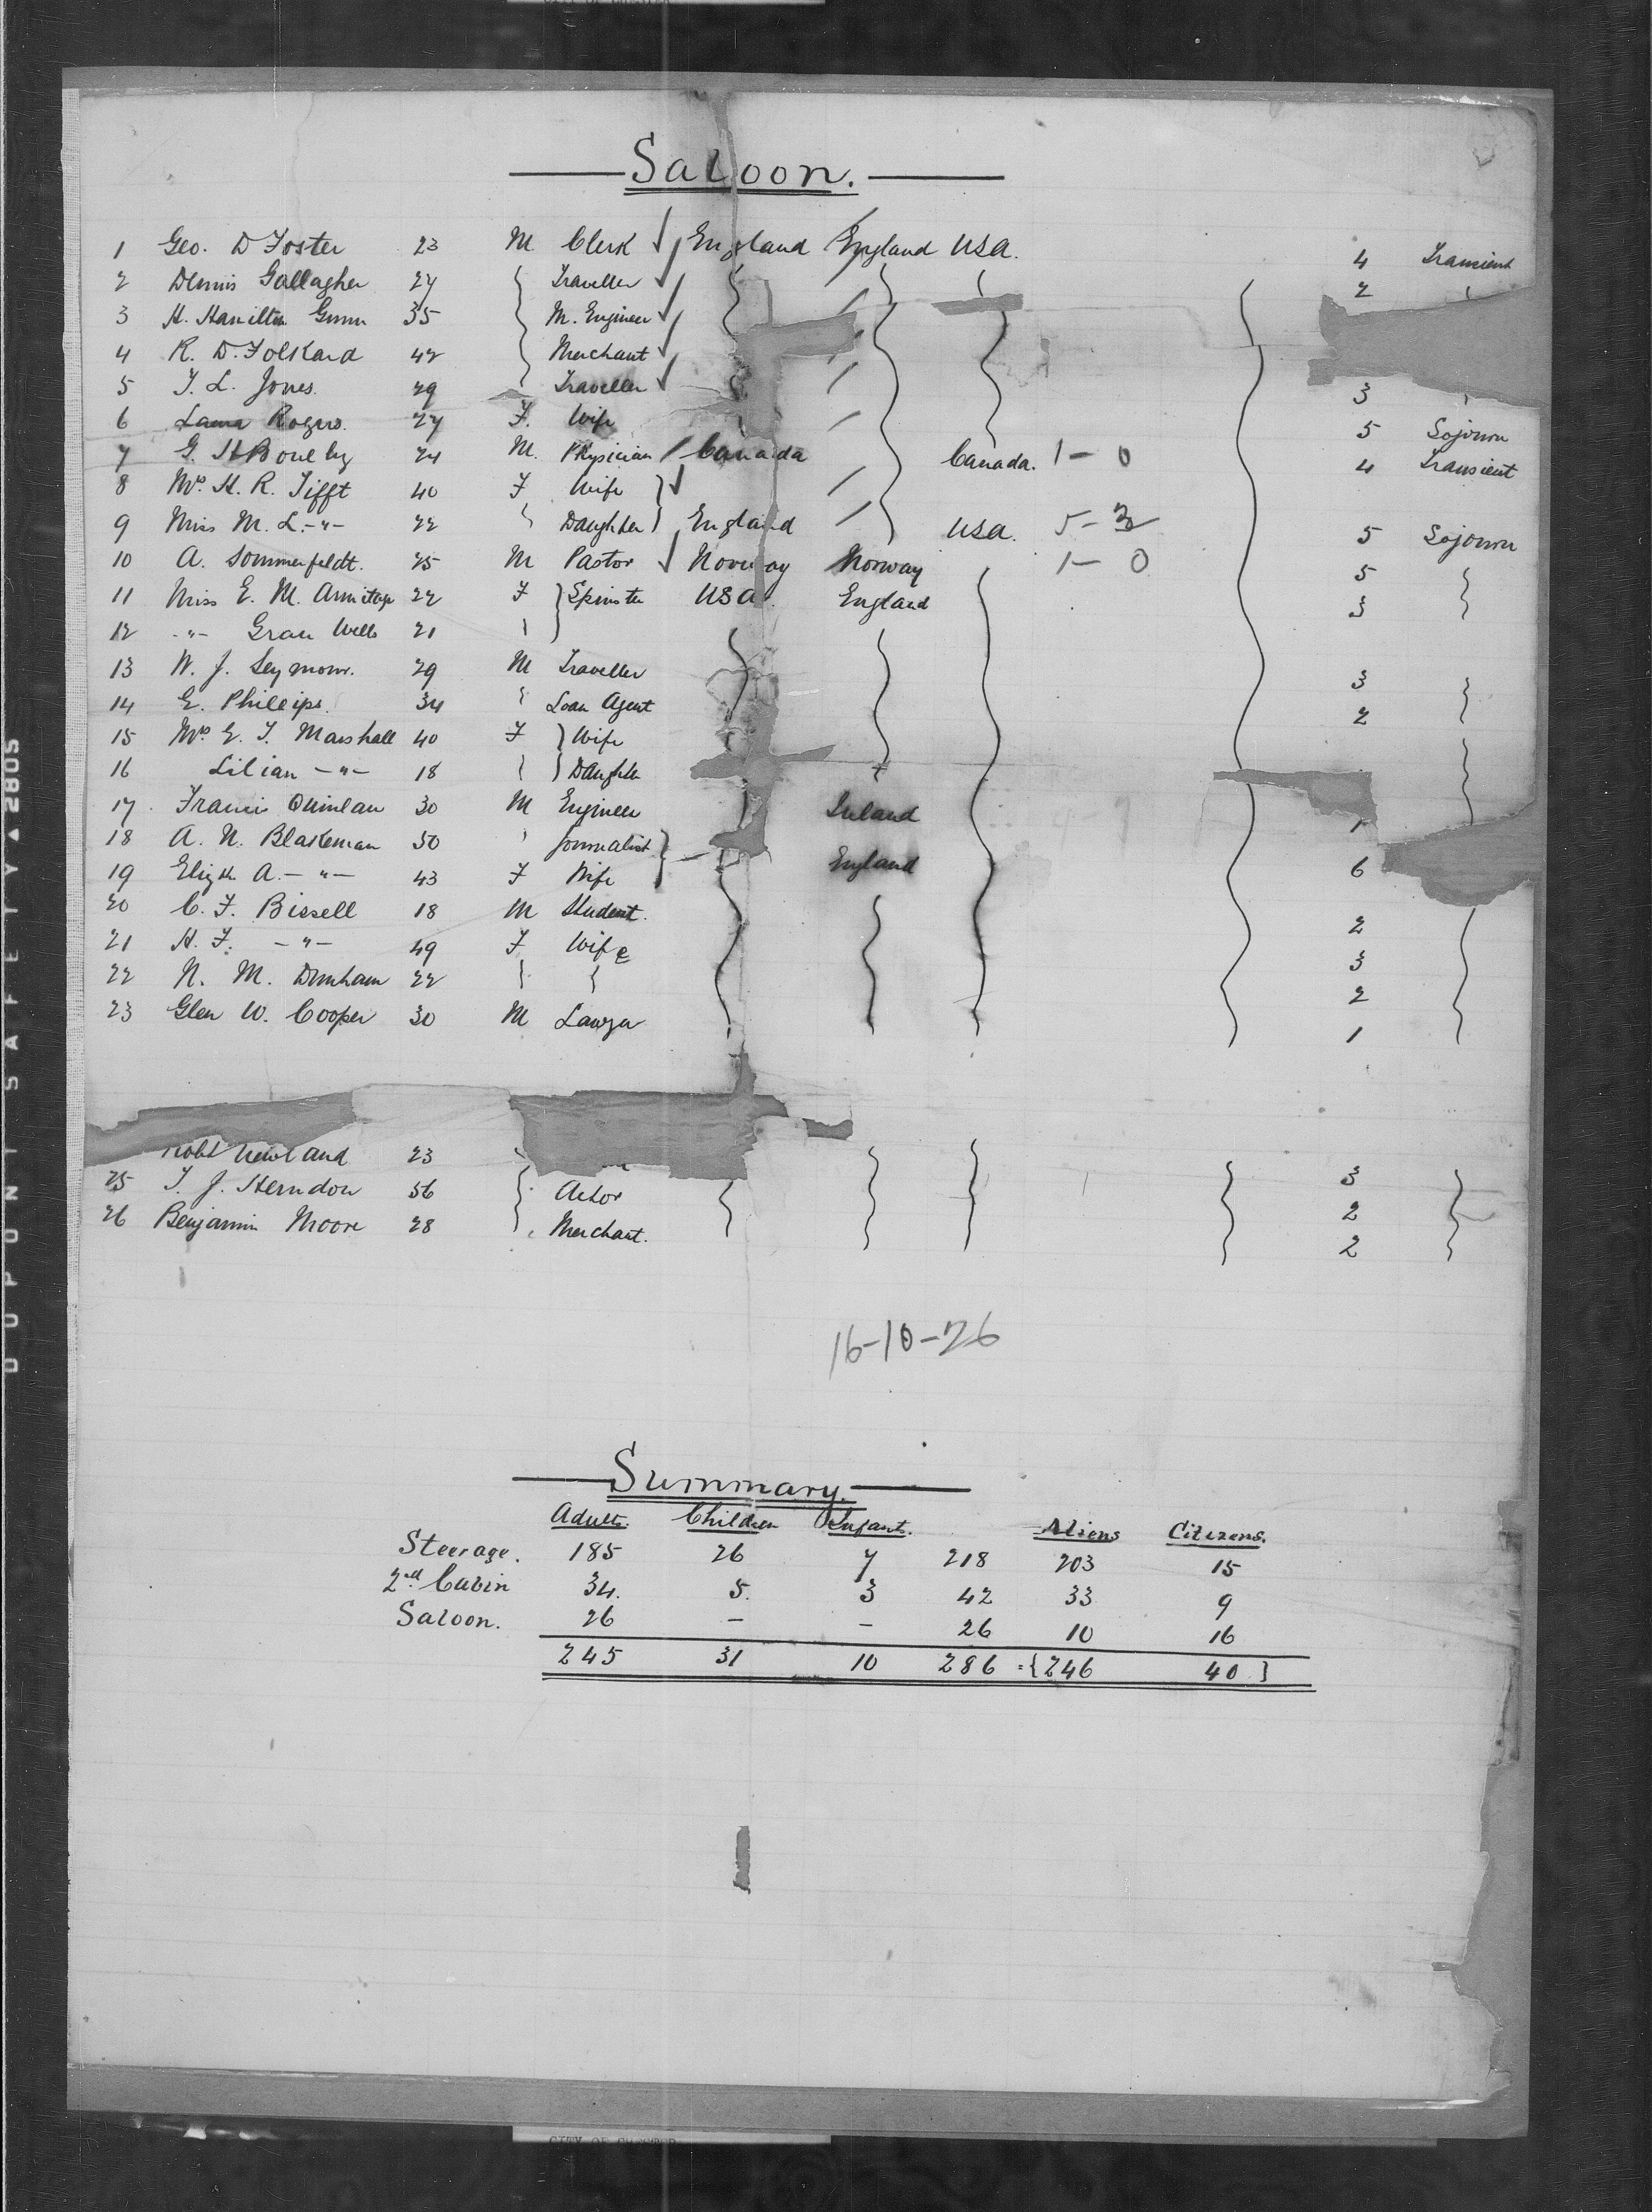 Saloon.
1 Geo. D Foster 23 M Clerk England England USA. 4 Transient
2 Dennis Gallagher 27 Traveller 2
3 H. Hamilton Gunn 35 M. Engineer
4 R. D. Folkard 42 Merchant
5 T. L. Jones. 29 Traveller 3
6 Laura Rogers. 27 F. Wife 5 Sojourn
7 G. H 24 M. Physician Canada Canada. 1-0 4 Transient
8 Mrs. H. R. Tifft 40 F Wife
9 Miss M. L. -"- 22 Daughter England USA. 5- 5 Sojourn
10 A. Sommerfeldt. 25 M Pastor Norway Norway 1-0 5
11 Miss E. M. Armitage 22 F Spinster USA. England 3
12 -"- Grace Wells 21
13 W. J. Seymour. 29 M Traveller 3
14 E. Phillips. 34 Loan Agent 2
15 Mrs E. T. Marshall 40 F Wife
16 Lilian -"- 18 Daughter
17 Francis Quinlan 30 M Engineer Ireland 1
18 A. N. Blakeman 50 Journalist England 6
19 Elizth. A. -"- 43 F Wife
20 C. F. Bissell 18 M Student. 2
21 H. F. -"- 49 F Wife 3
22 N. M. Dunham 22 2
23 Glen W. Cooper 30 M Lawyer 1
Robt Newland 23 3
25 T. J. Herndon 56 Actor 2
26 Benjamin Moore 28 Merchant. 2
16-10-26
Summary.
Adults. Children Infants. Aliens Citizens.
Steerage. 185 26 7 218 203 15
2nd Cabin 34. 5. 3 42 33 9
Saloon. 26 - - 26 10 16
245 31 10 286 = {246 40}
DUPONT SAFETY ▲ 2805